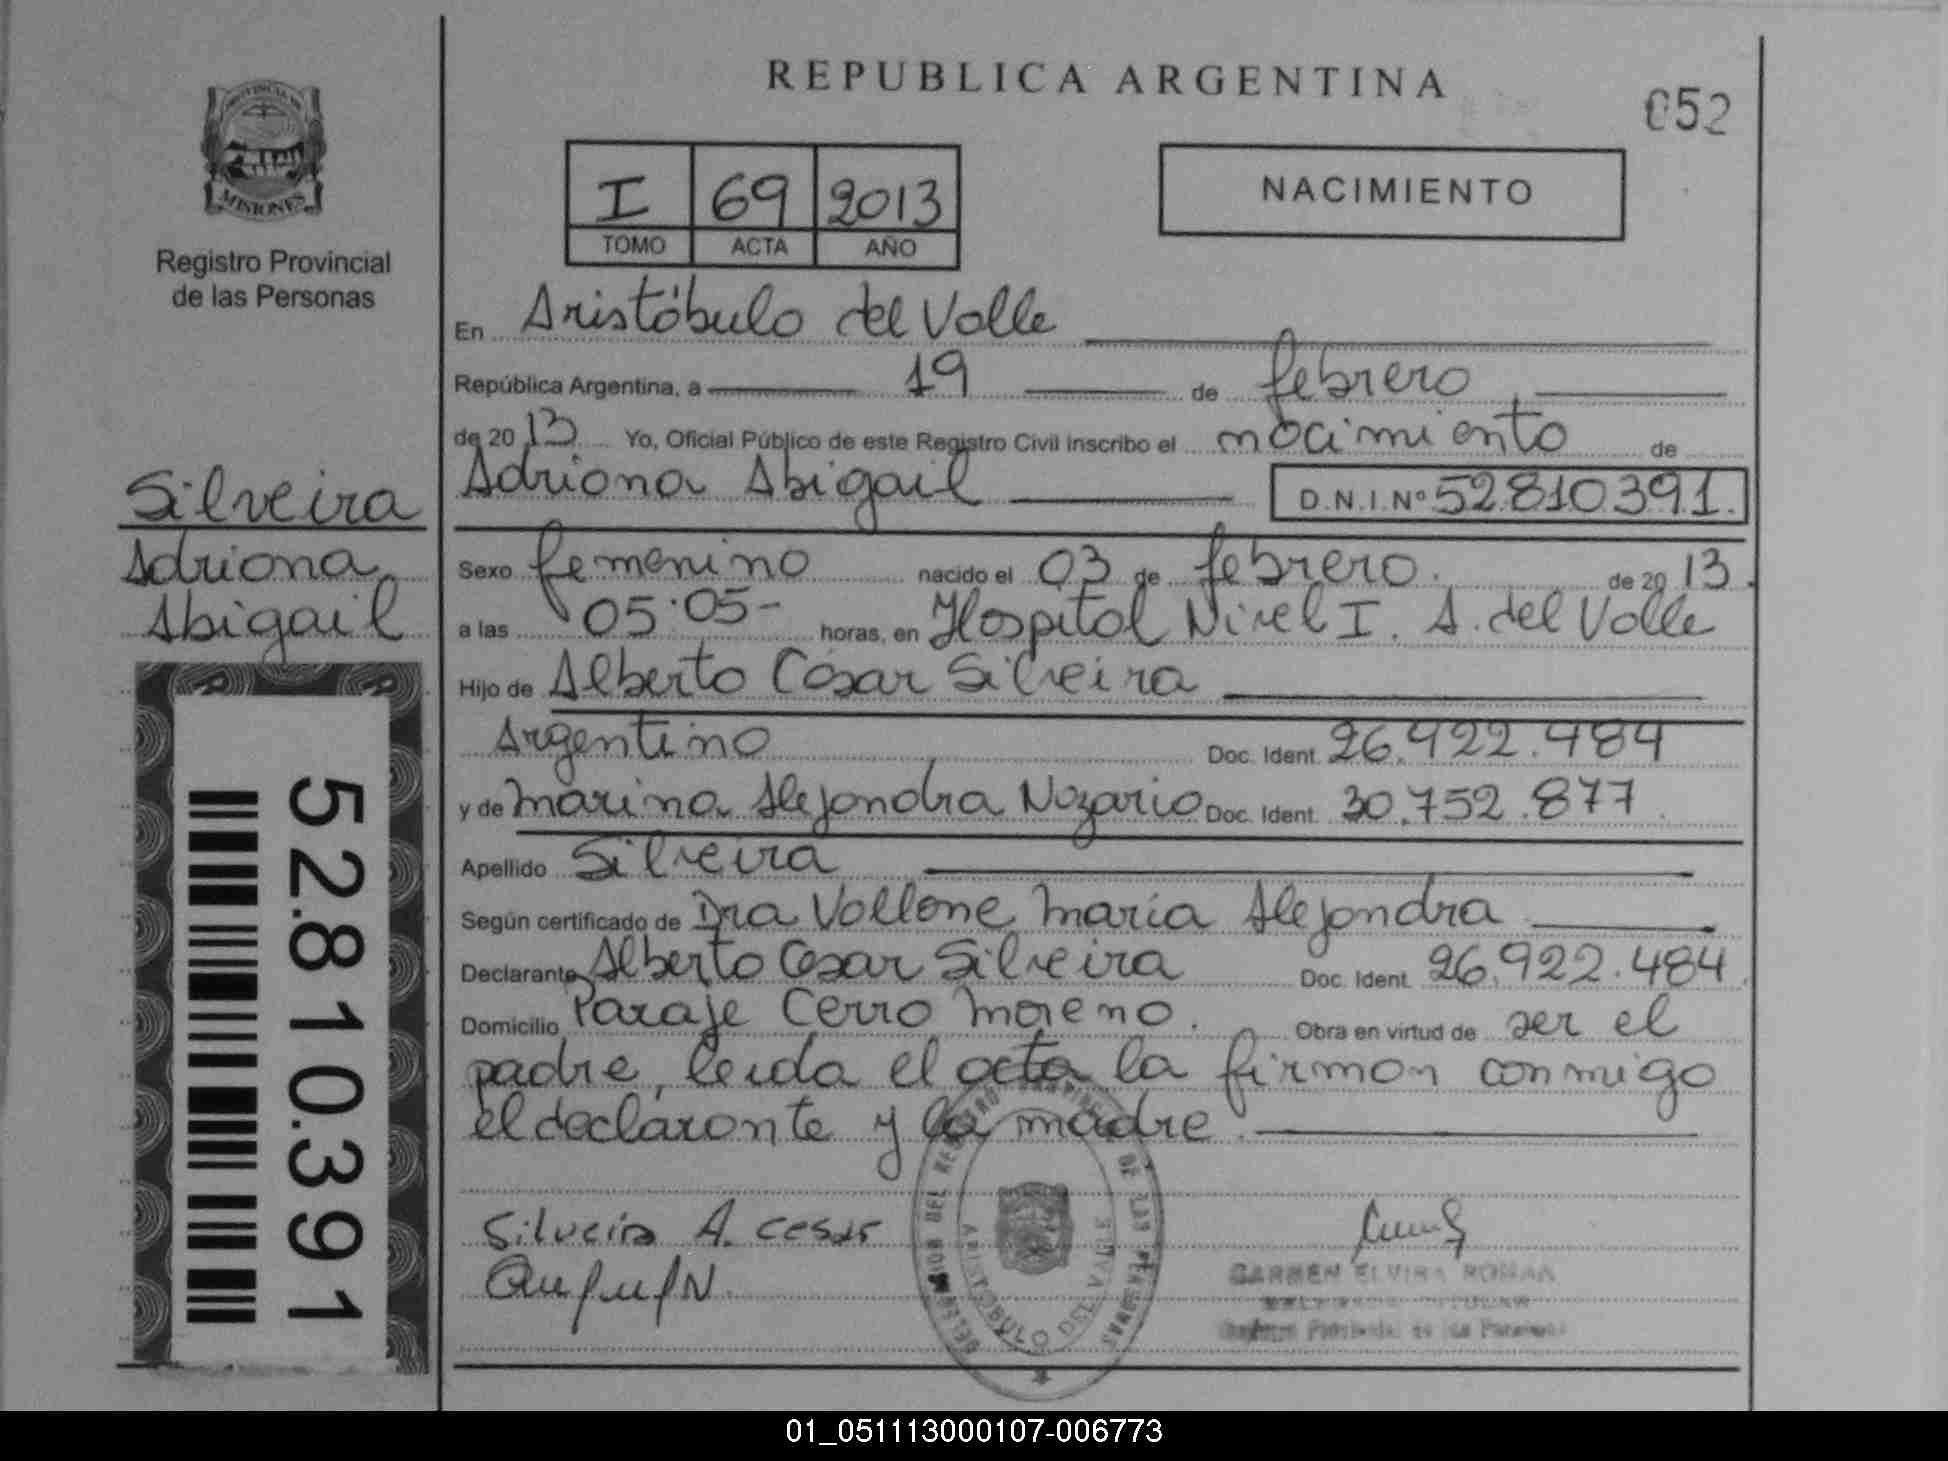 REPUBLICA ARGENTINA
052
PROVINCIA DE
MISIONES
Registro Provincial
de las Personas
I 69 2013
TOMO ACTA AÑO
NACIMIENTO
En Aristóbulo del Valle
República Argentina, a 19 de febrero
de 2013 Yo, Oficial Público de este Registro Civil inscribo el nacimiento de
Adriana Abigail D.N.I.Nº 52.810.391.
Silveira
Adriana
Abigail
Sexo femenino nacido el 03 de febrero. de 2013.
a las 05:05- horas, en Hospital Nivel I. A. del Valle
Hijo de Alberto César Silveira
Argentino Doc. Ident. 26.922.484
y de Marina Alejandra Nazario Doc. Ident. 30.752.877
Apellido Silveira
Según certificado de Dra Vallone María Alejandra
Declarante Alberto César Silveira Doc. Ident. 26.922.484
Domicilio Paraje Cerro Moreno. Obra en virtud de ser el
padre, leida el acta la firman conmigo
el declarante y la madre.
52.810.391
Silveira A. cesar
DELEGACION DEL REGISTRO PROVINCIAL DE LAS PERSONAS
ARISTOBULO DEL VALLE
CARMEN ELVIRA ROMAN
Registro Provincial de las Personas
01_051113000107-006773